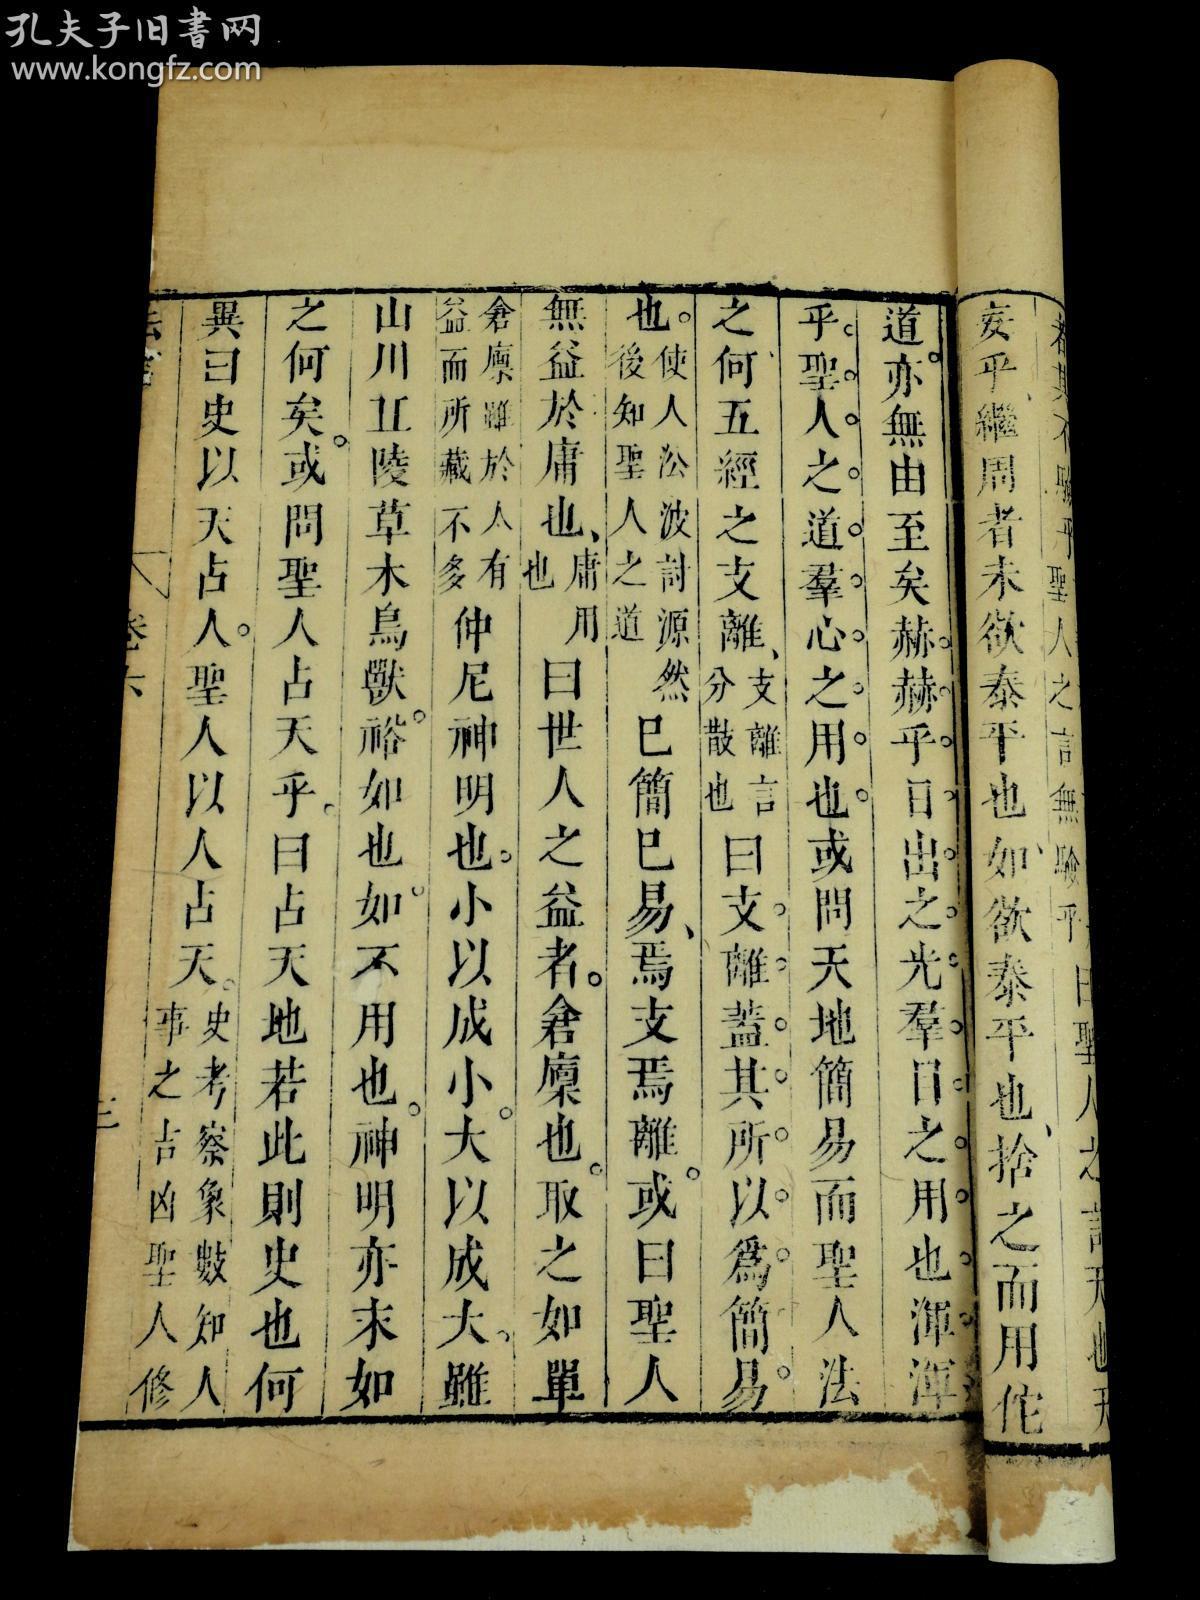 孔夫子旧書网
www.kongfz.com
聖人之言無驗乎曰聖人之言天也天
妄乎、繼周者未欲泰平也、如欲泰平也、捨之而用佗
道。亦無由至矣赫。赫。乎。日。出。之。光。羣。目。之。用。也。渾。渾
乎。聖。人。之。道。羣。心。之。用。也。或問天地簡易而聖人法
之何五經之支離、支離言分散也曰支。離。蓋。其。所。以。爲。簡。易。
也。使人㳂波討源然後知聖人之道已簡已易、焉支焉離。或曰聖人
無益於庸也、庸用也曰世人之益者。倉廩也。取之如單
倉廩雖於人有益而所藏不多仲尼神明也。小以成小。大以成大、雖
山川丘陵草木鳥獸裕如也。如不用也。神明亦末如
之何矣。或問聖人占天乎。曰占天地若此則史也何
異曰史以天占人。聖人以人占天。史考察象數知人事之吉凶聖人修
法言
卷六
三